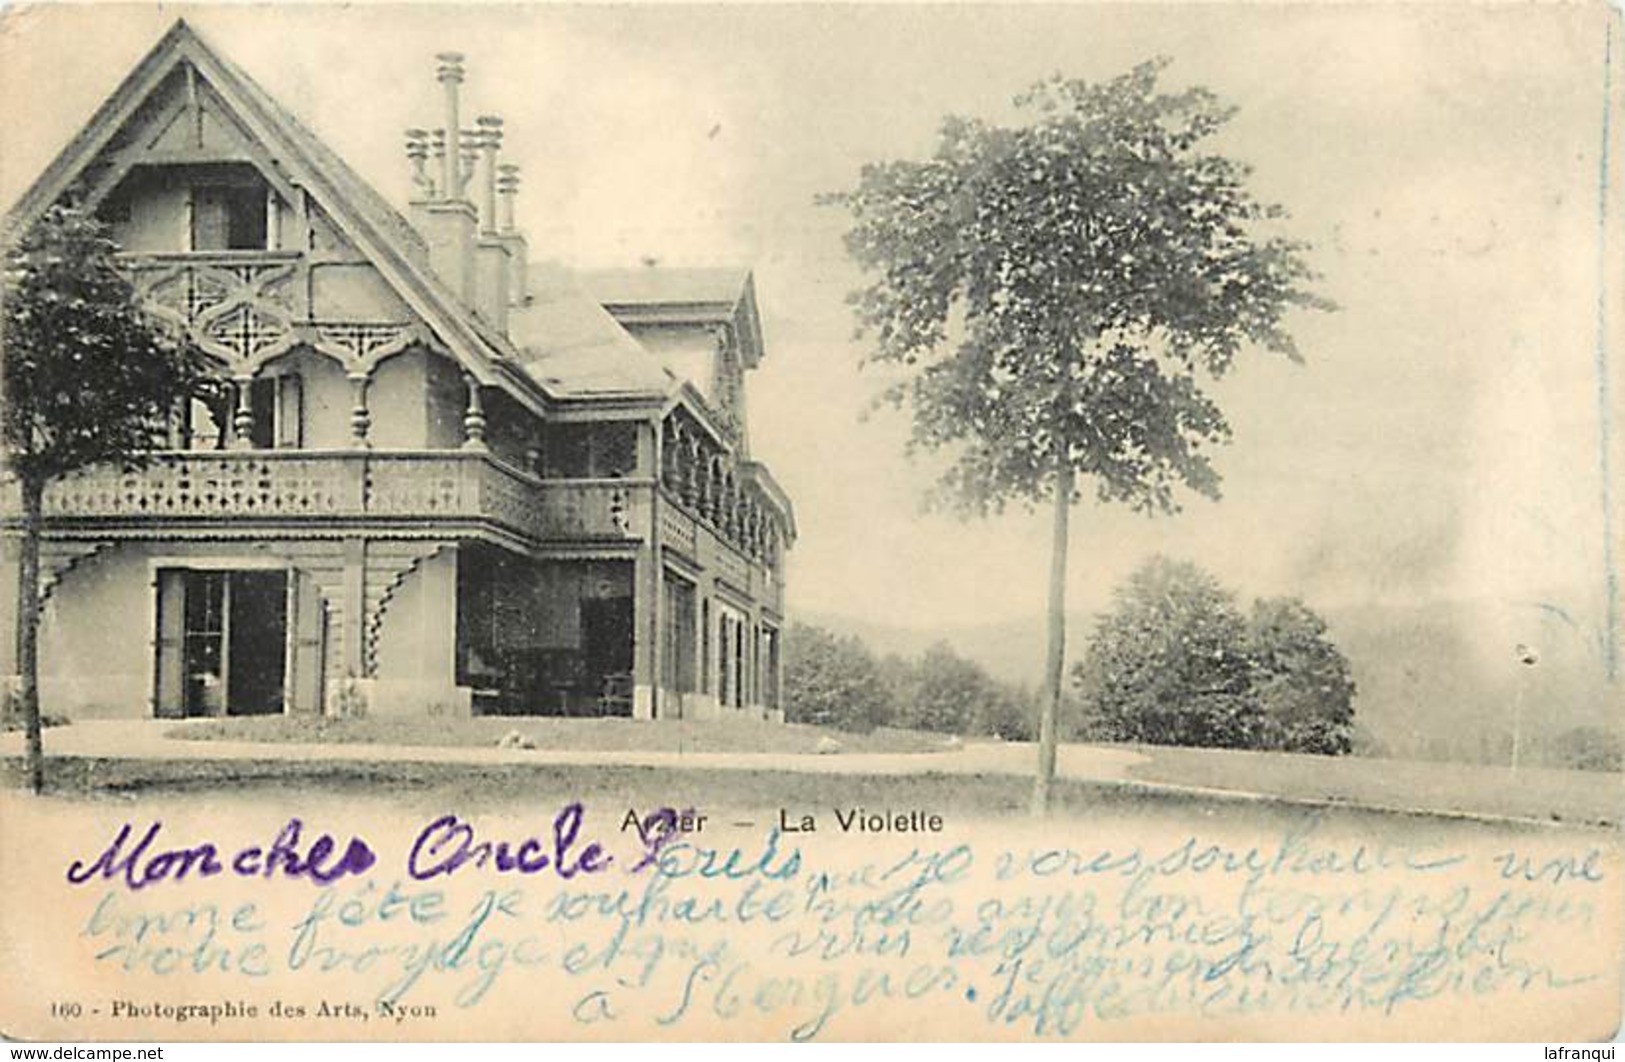 Arzier – La Violette
Mon cher Oncle Louis, que je vous souhaite une
bonne fête je souhaite vous ayez bon temps pour
votre voyage et que vous reveniez bientôt
à Je vous embrasse bien
affectueusement
160 - Photographie des Arts, Nyon
www.delcampe.net
lafranqui